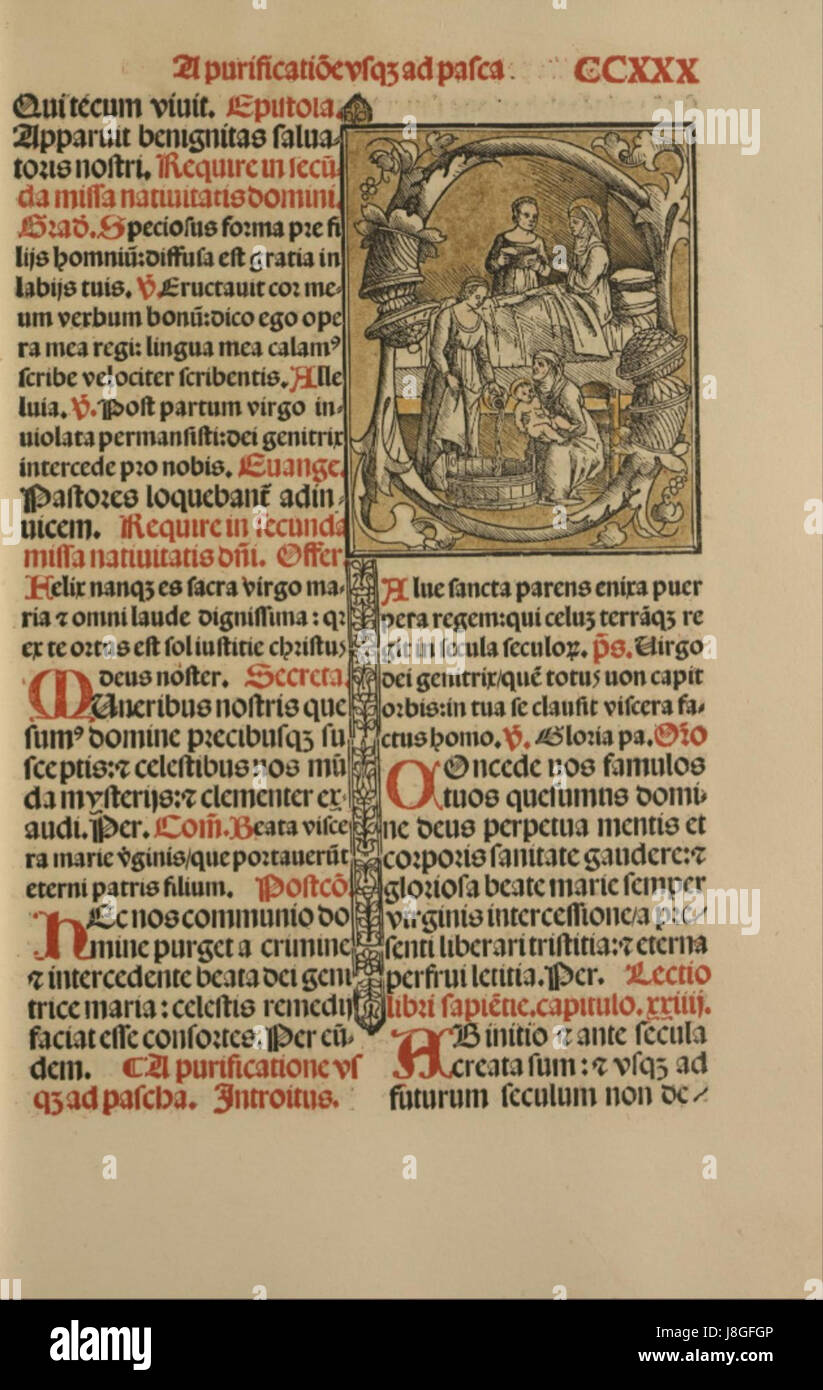 A purificatiōe vsqꝫ ad pasca. CCXXX
Qui tecum viuit. Epistola.
Apparuit benignitas salua-
toris nostri. Require in secū
da missa natiuitatis domini.
Grad̄. Speciosus forma pre fi
lijs hominū: diffusa est gratia in
labijs tuis. ℣. Eructauit cor me-
um verbum bonū: dico ego ope
ra mea regi: lingua mea calamꝰ
scribe velociter scribentis. Alle
luia. ℣. Post partum virgo in-
uiolata permansisti: dei genitrix
intercede pro nobis. Euange.
Pastores loquebant̄ adin-
uicem. Require in secunda
missa natiuitatis dn̄i. Offer.
Felix nanqꝫ es sacra virgo ma-
ria ⁊ omni laude dignissima: qꝛ
ex te ortus est sol iustitie christus
deus noster. Secreta.
MUneribus nostris que
sumꝰ domine precibusqꝫ su
sceptis: ⁊ celestibus nos mū
da mysterijs: ⁊ clementer ex-
audi. Per. Com̄. Beata visce
ra marie v̄ginis/que portauerūt
eterni patris filium. Postcō
HEc nos communio do
mine purget a crimine
⁊ intercedente beata dei geni
trice maria: celestis remedij
faciat esse consortes. Per eū-
dem. ¶A purificatione vs
qꝫ ad pascha. Introitus.
SAlue sancta parens enixa puer
pera regem: qui celuꝫ terrāqꝫ re
git in secula seculoꝝ. p̄s. Uirgo
dei genitrix/quē totus non capit
orbis: in tua se clausit viscera fa-
ctus homo. ℣. Gloria pa. Oro
COncede nos famulos
tuos quesumus domi-
ne deus perpetua mentis et
corporis sanitate gaudere: ⁊
gloriosa beate marie semper
virginis intercessione/a pre-
senti liberari tristitia: ⁊ eterna
perfrui letitia. Per. Lectio
libri sapiētie. capitulo. xxiiij.
AB initio ⁊ ante secula
creata sum: ⁊ vsqꝫ ad
futurum seculum non de-
alamy
Image ID: J8GFGP
www.alamy.com